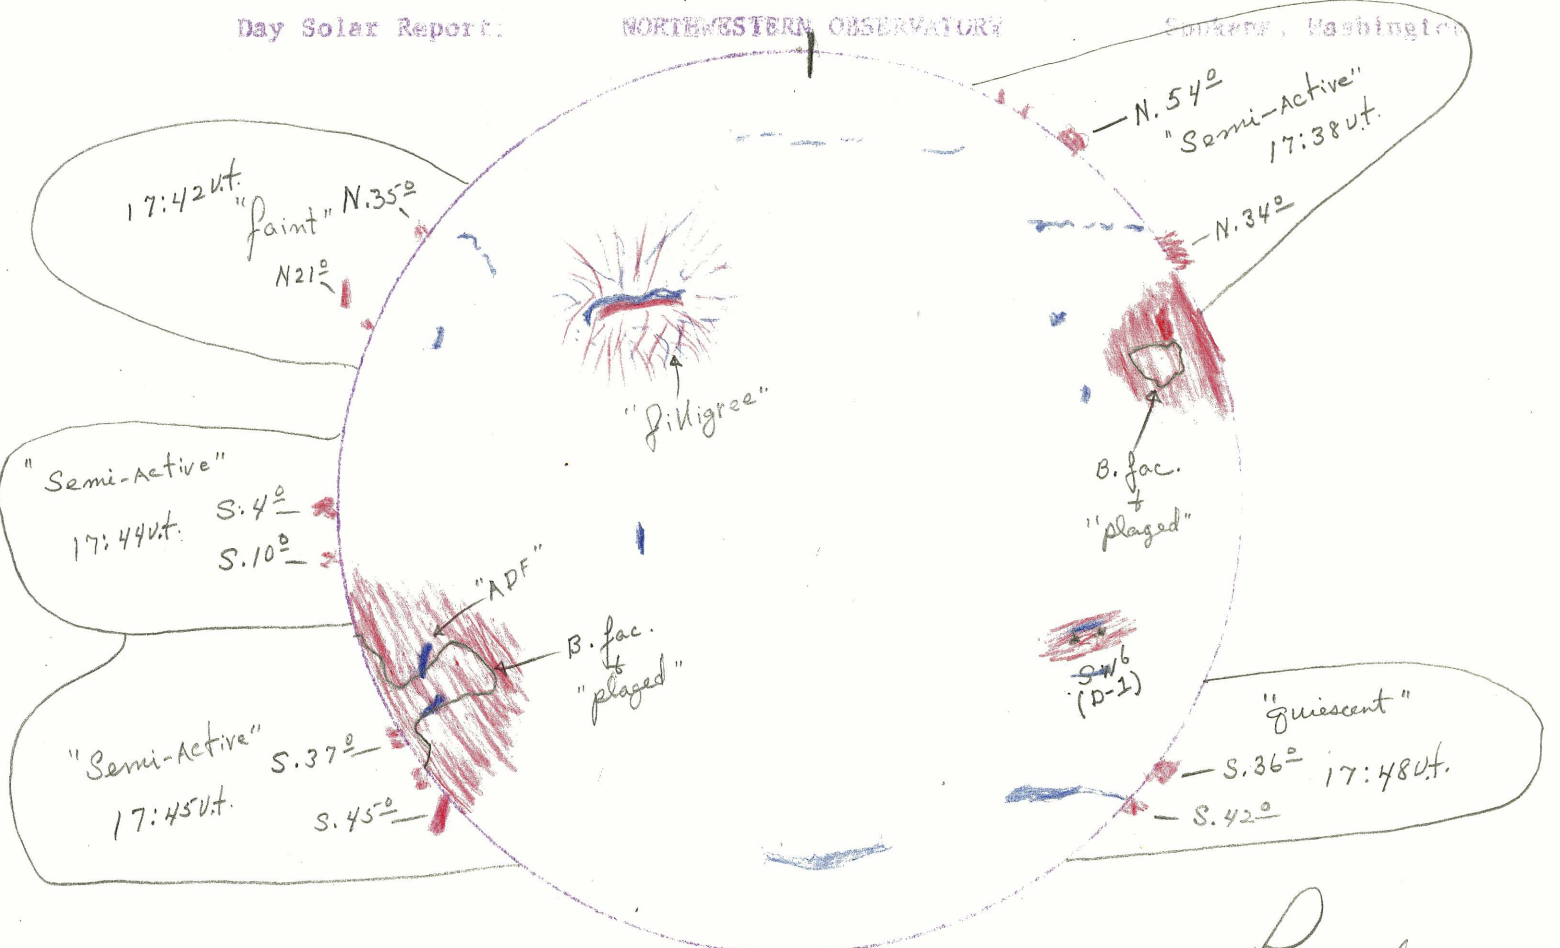 Day Solar Report: NORTHWESTERN OBSERVATORY Spokane, Washington
N.54º
"Semi-Active"
17:38 U.t.
N.34º
17:42 U.t.
"faint" N.35º
N21º
"filligree"
B. fac.
+
"plaged"
"Semi-Active"
S.4º
17:44 U.t.
S.10º
"ADF"
B. fac.
+
"plaged"
SW6
(D-1)
"quiescent"
S.36º 17:48 U.t.
S.42º
"Semi-Active" S.37º
17:45 U.t.
S.45º